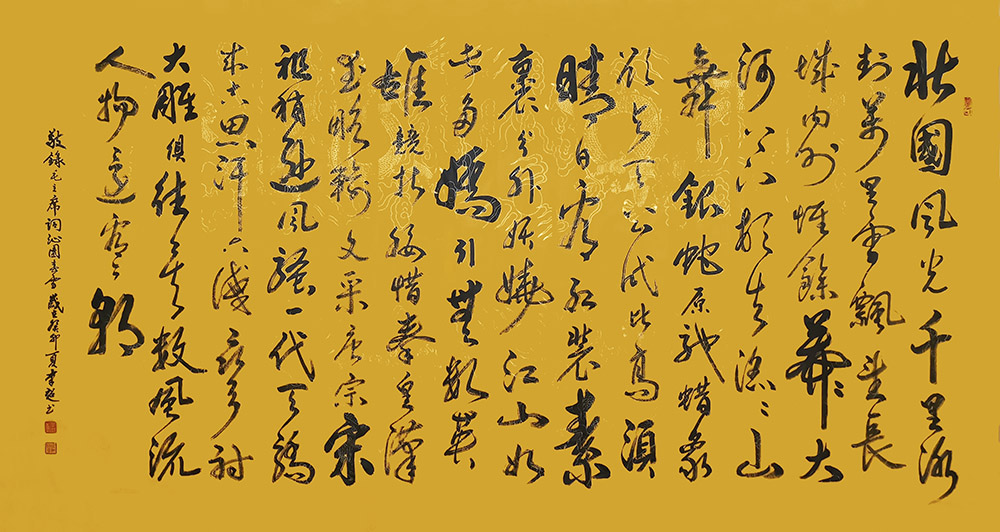 北國風光千里冰
封萬里雪飄望長
城内外惟餘莽〻大
河上下頓失滔〻山
舞銀蛇原驰蜡象
欲与天公試比高須
晴日看红裝素
裹分外妖嬈江山如
此多嬌引無数英
雄競折腰惜秦皇漢
武略输文采唐宗宋
祖稍逊風骚一代天驕
成吉思汗只識弯弓射
大雕俱往矣数風流
人物還看今朝
敬錄毛主席詞沁園春雪歲在癸卯夏李书